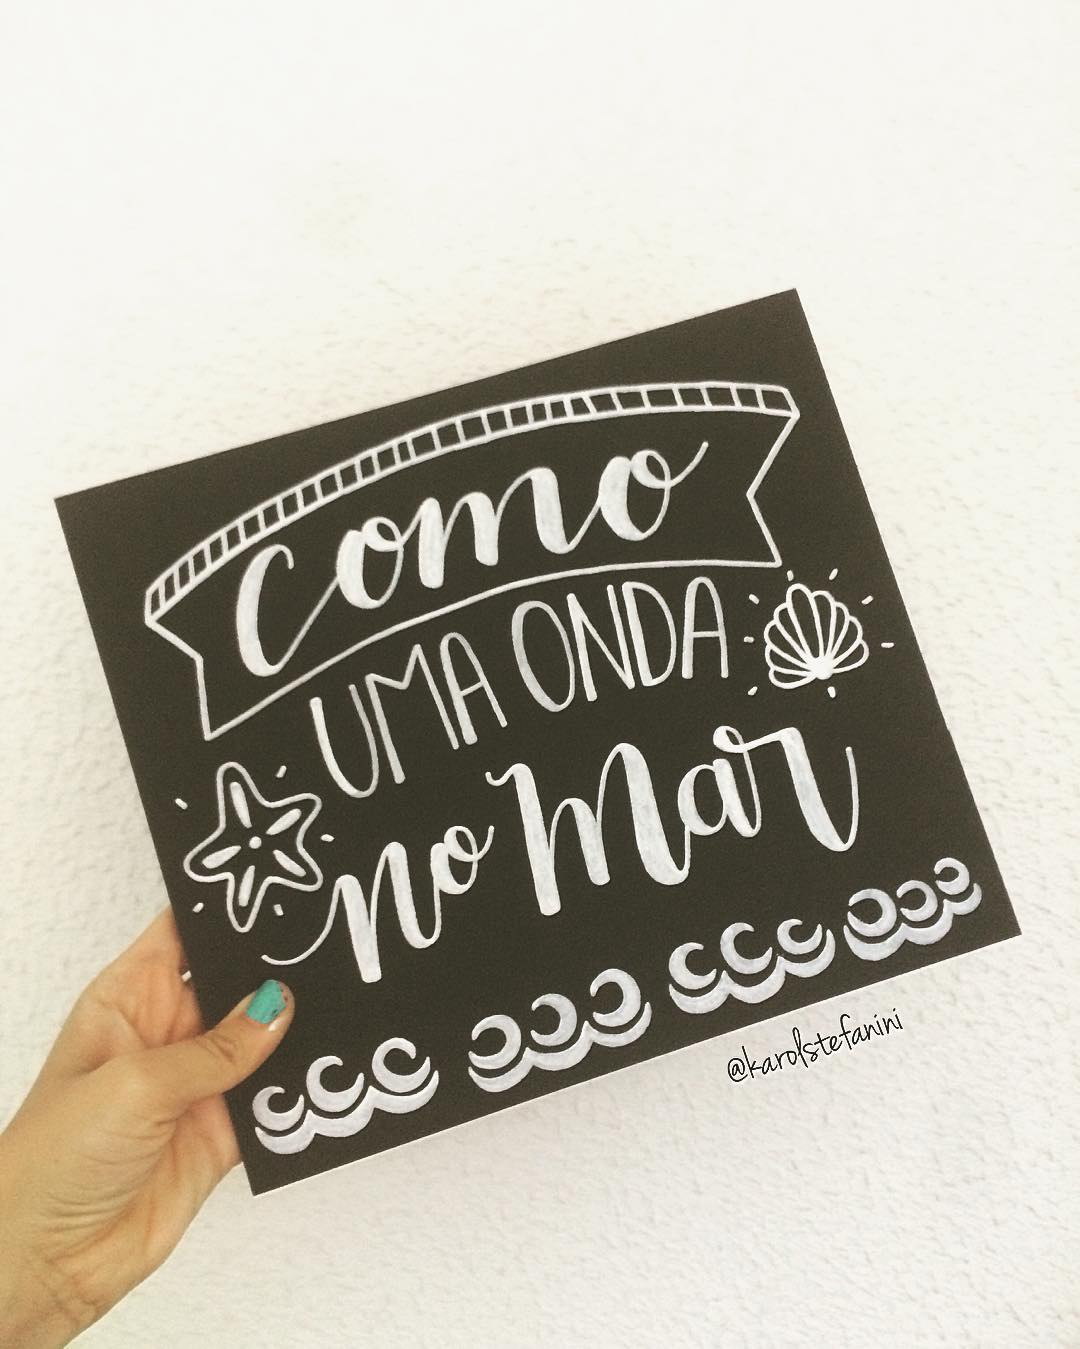 Como
UMA ONDA
no Mar
@karolstefanini